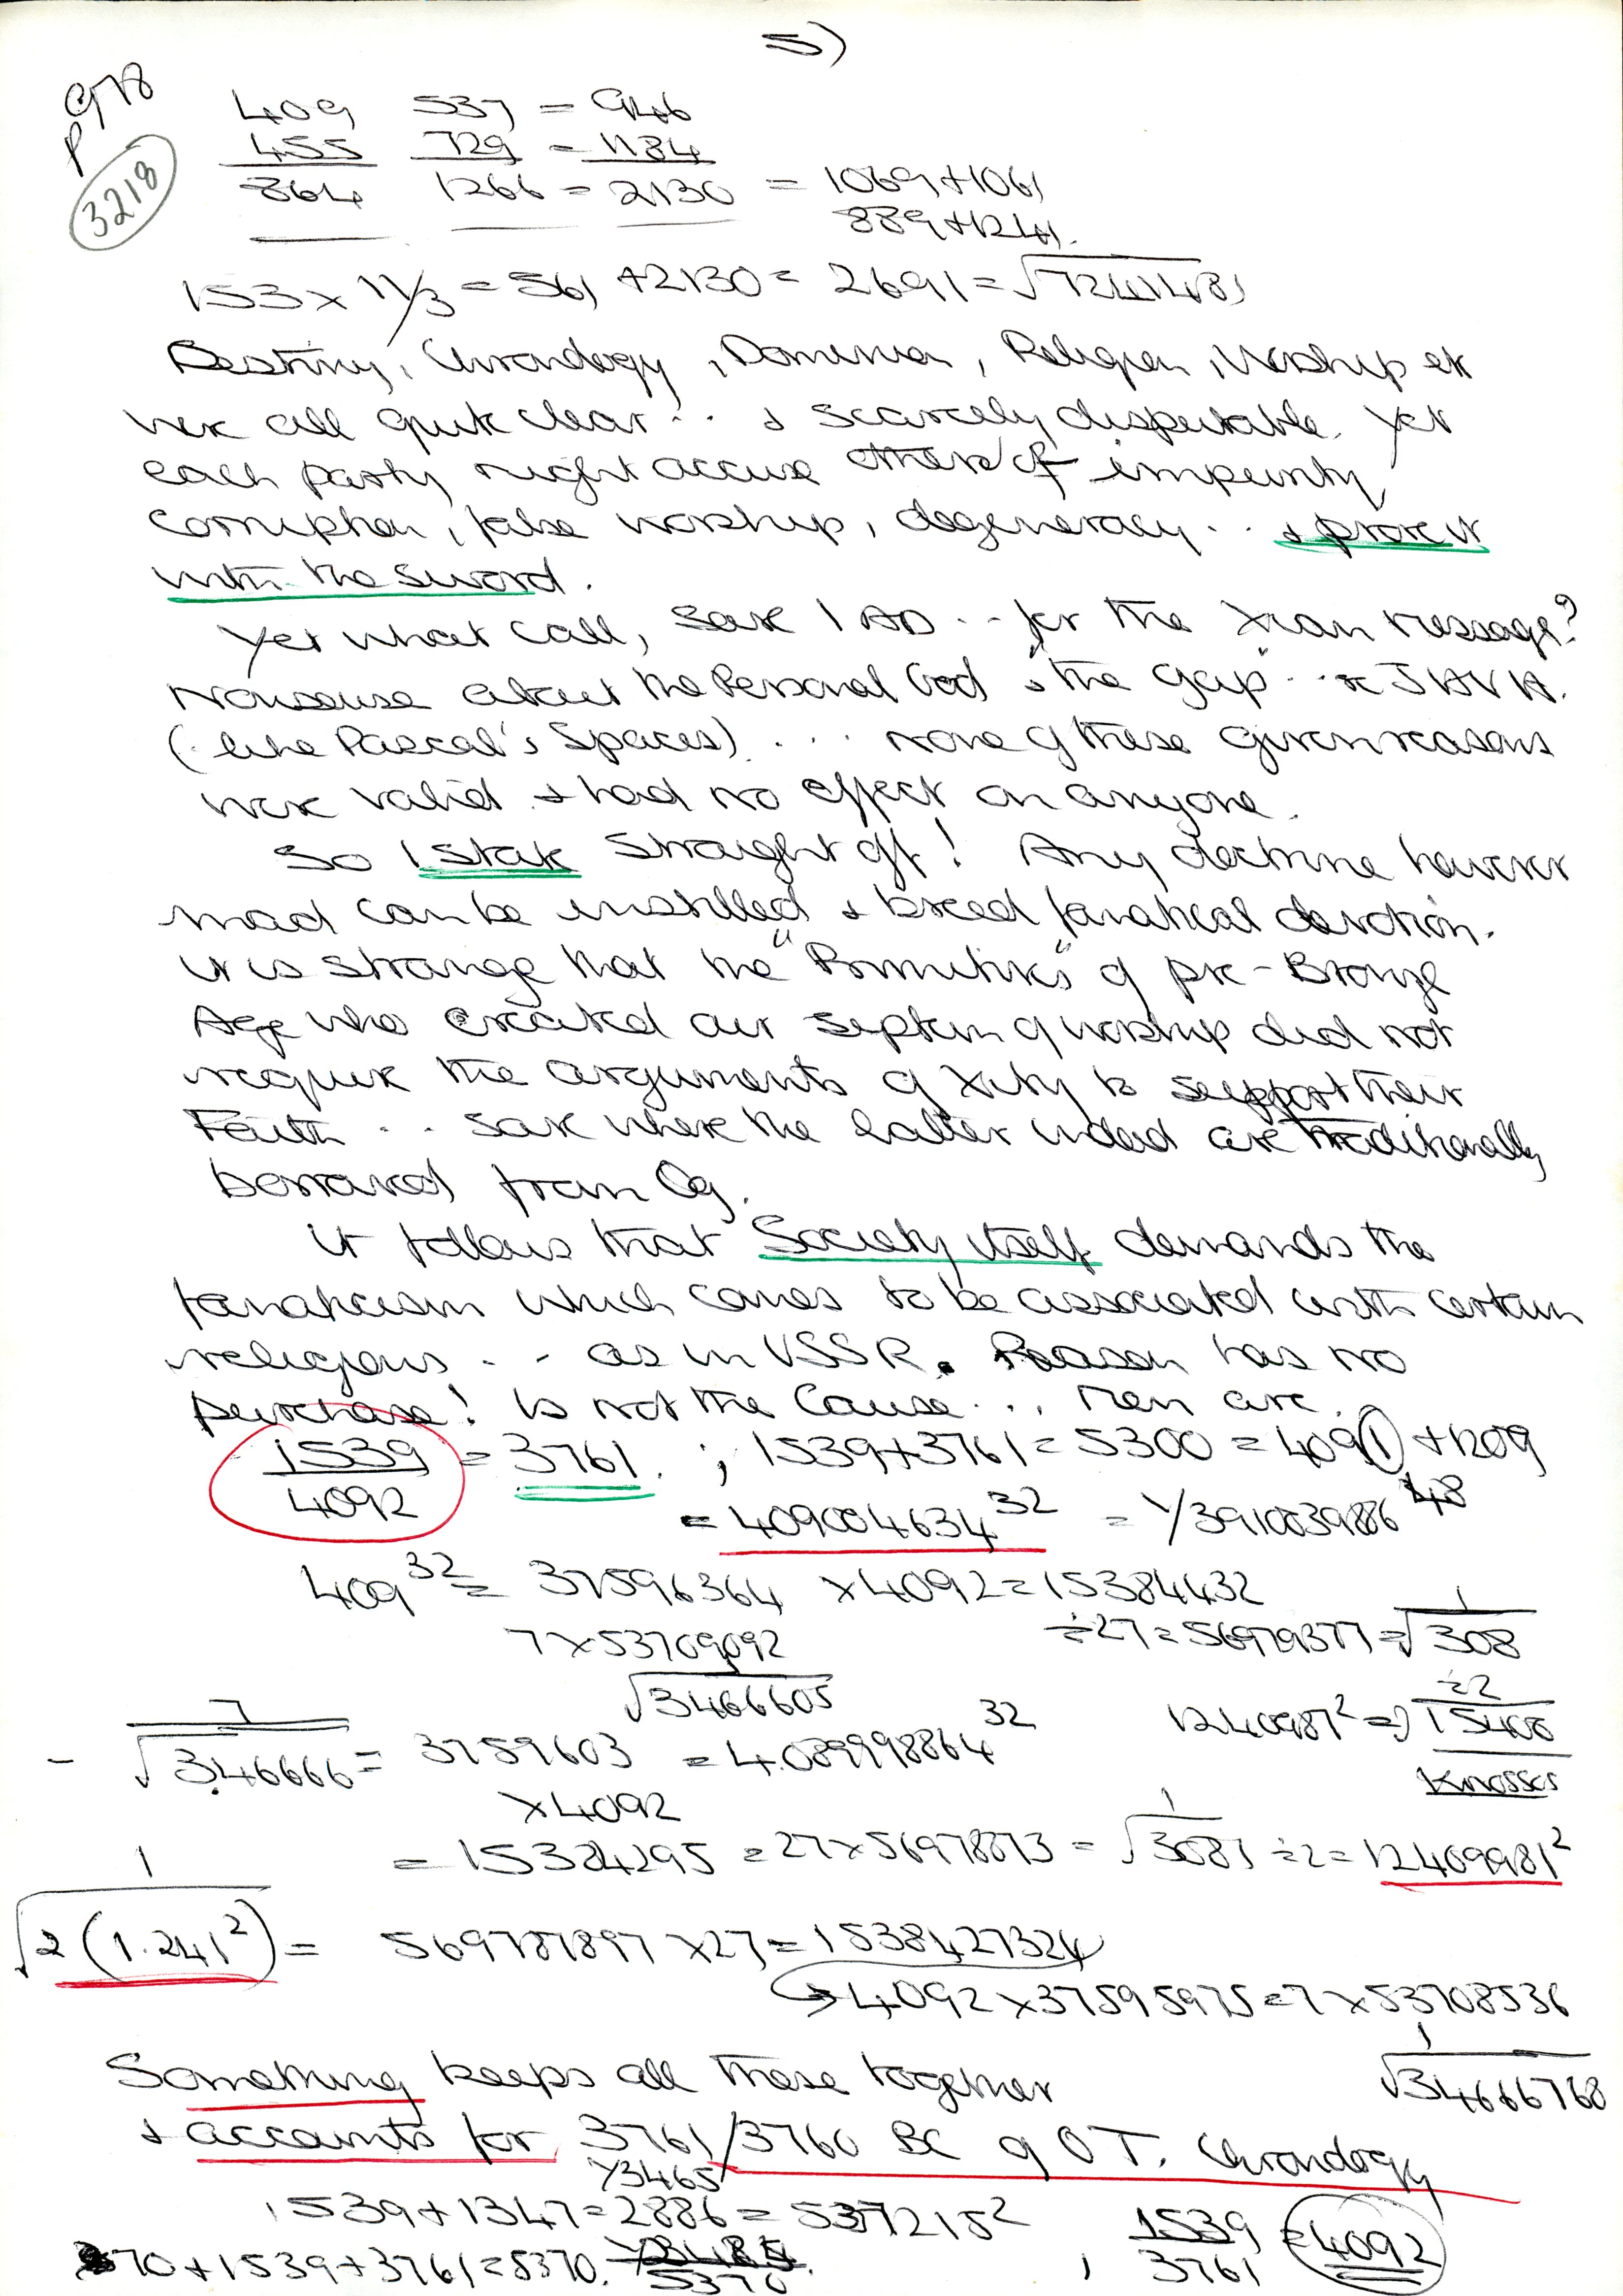 5)
G78
P
3218
409 537 = 946
455 729 = 1184
864 1266 = 2130 = 1069+1061
889+1241.
153 x 11/3 = 561 +2130 = 2691 = √7241481
Destiny, Chronology, Dominion, Religion, Worship etc
were all quite clear .. & scarcely disputable. Yet
each party might accuse others of impurity,
corruption, false worship, degeneracy .. & prove it
with the sword.
Yet what call, save 1 AD .. for the Xian message?
Nonsense about the Personal God & "the gap" .. JAVA.
(like Pascal's Spaces) ... none of these given reasons
were valid & had no effect on anyone.
So I state straight off! Any doctrine however
mad can be instilled & breed fanatical devotion.
It is strange that the "Primitives" of pre-Bronze
Age who created our system of worship did not
require the arguments of Xity to support their
Faith .. save where the latter indeed are traditionally
borrowed from Og.
It follows that Society itself demands the
fanaticism which comes to be associated with certain
religions .. as in USSR. Reason has no
purchase! Is not the Cause ... Men are.
1539/4092 = 3761. ; 1539+3761 = 5300 = 4091 + 1209
= 409004634^32 = 1/3910039886^48
409^32 = 37596364 x4092 = 15384432
7 x 53709092 ÷27 = 56979377 = 1/√308
√3466605 ÷2
- 7/√3.46666 = 3759603 = 4.089998864^32 1240987² = 15408
x4092 Knossos
= 15384295 = 27 x 56978873 = 1/√3081 ÷2 = 12409981²
1/√2(1.241²) = 569787897 x27 = 1538427324
→ 4092 x 37595975 = 7 x 53708536
Something keeps all these together 1/√34666768
& accounts for 3761/3760 BC of O T. Chronology
1/3465
1539+1347 = 2886 = 537215²
70+1539+3761 = 5370. , 1539/3761 = 4092